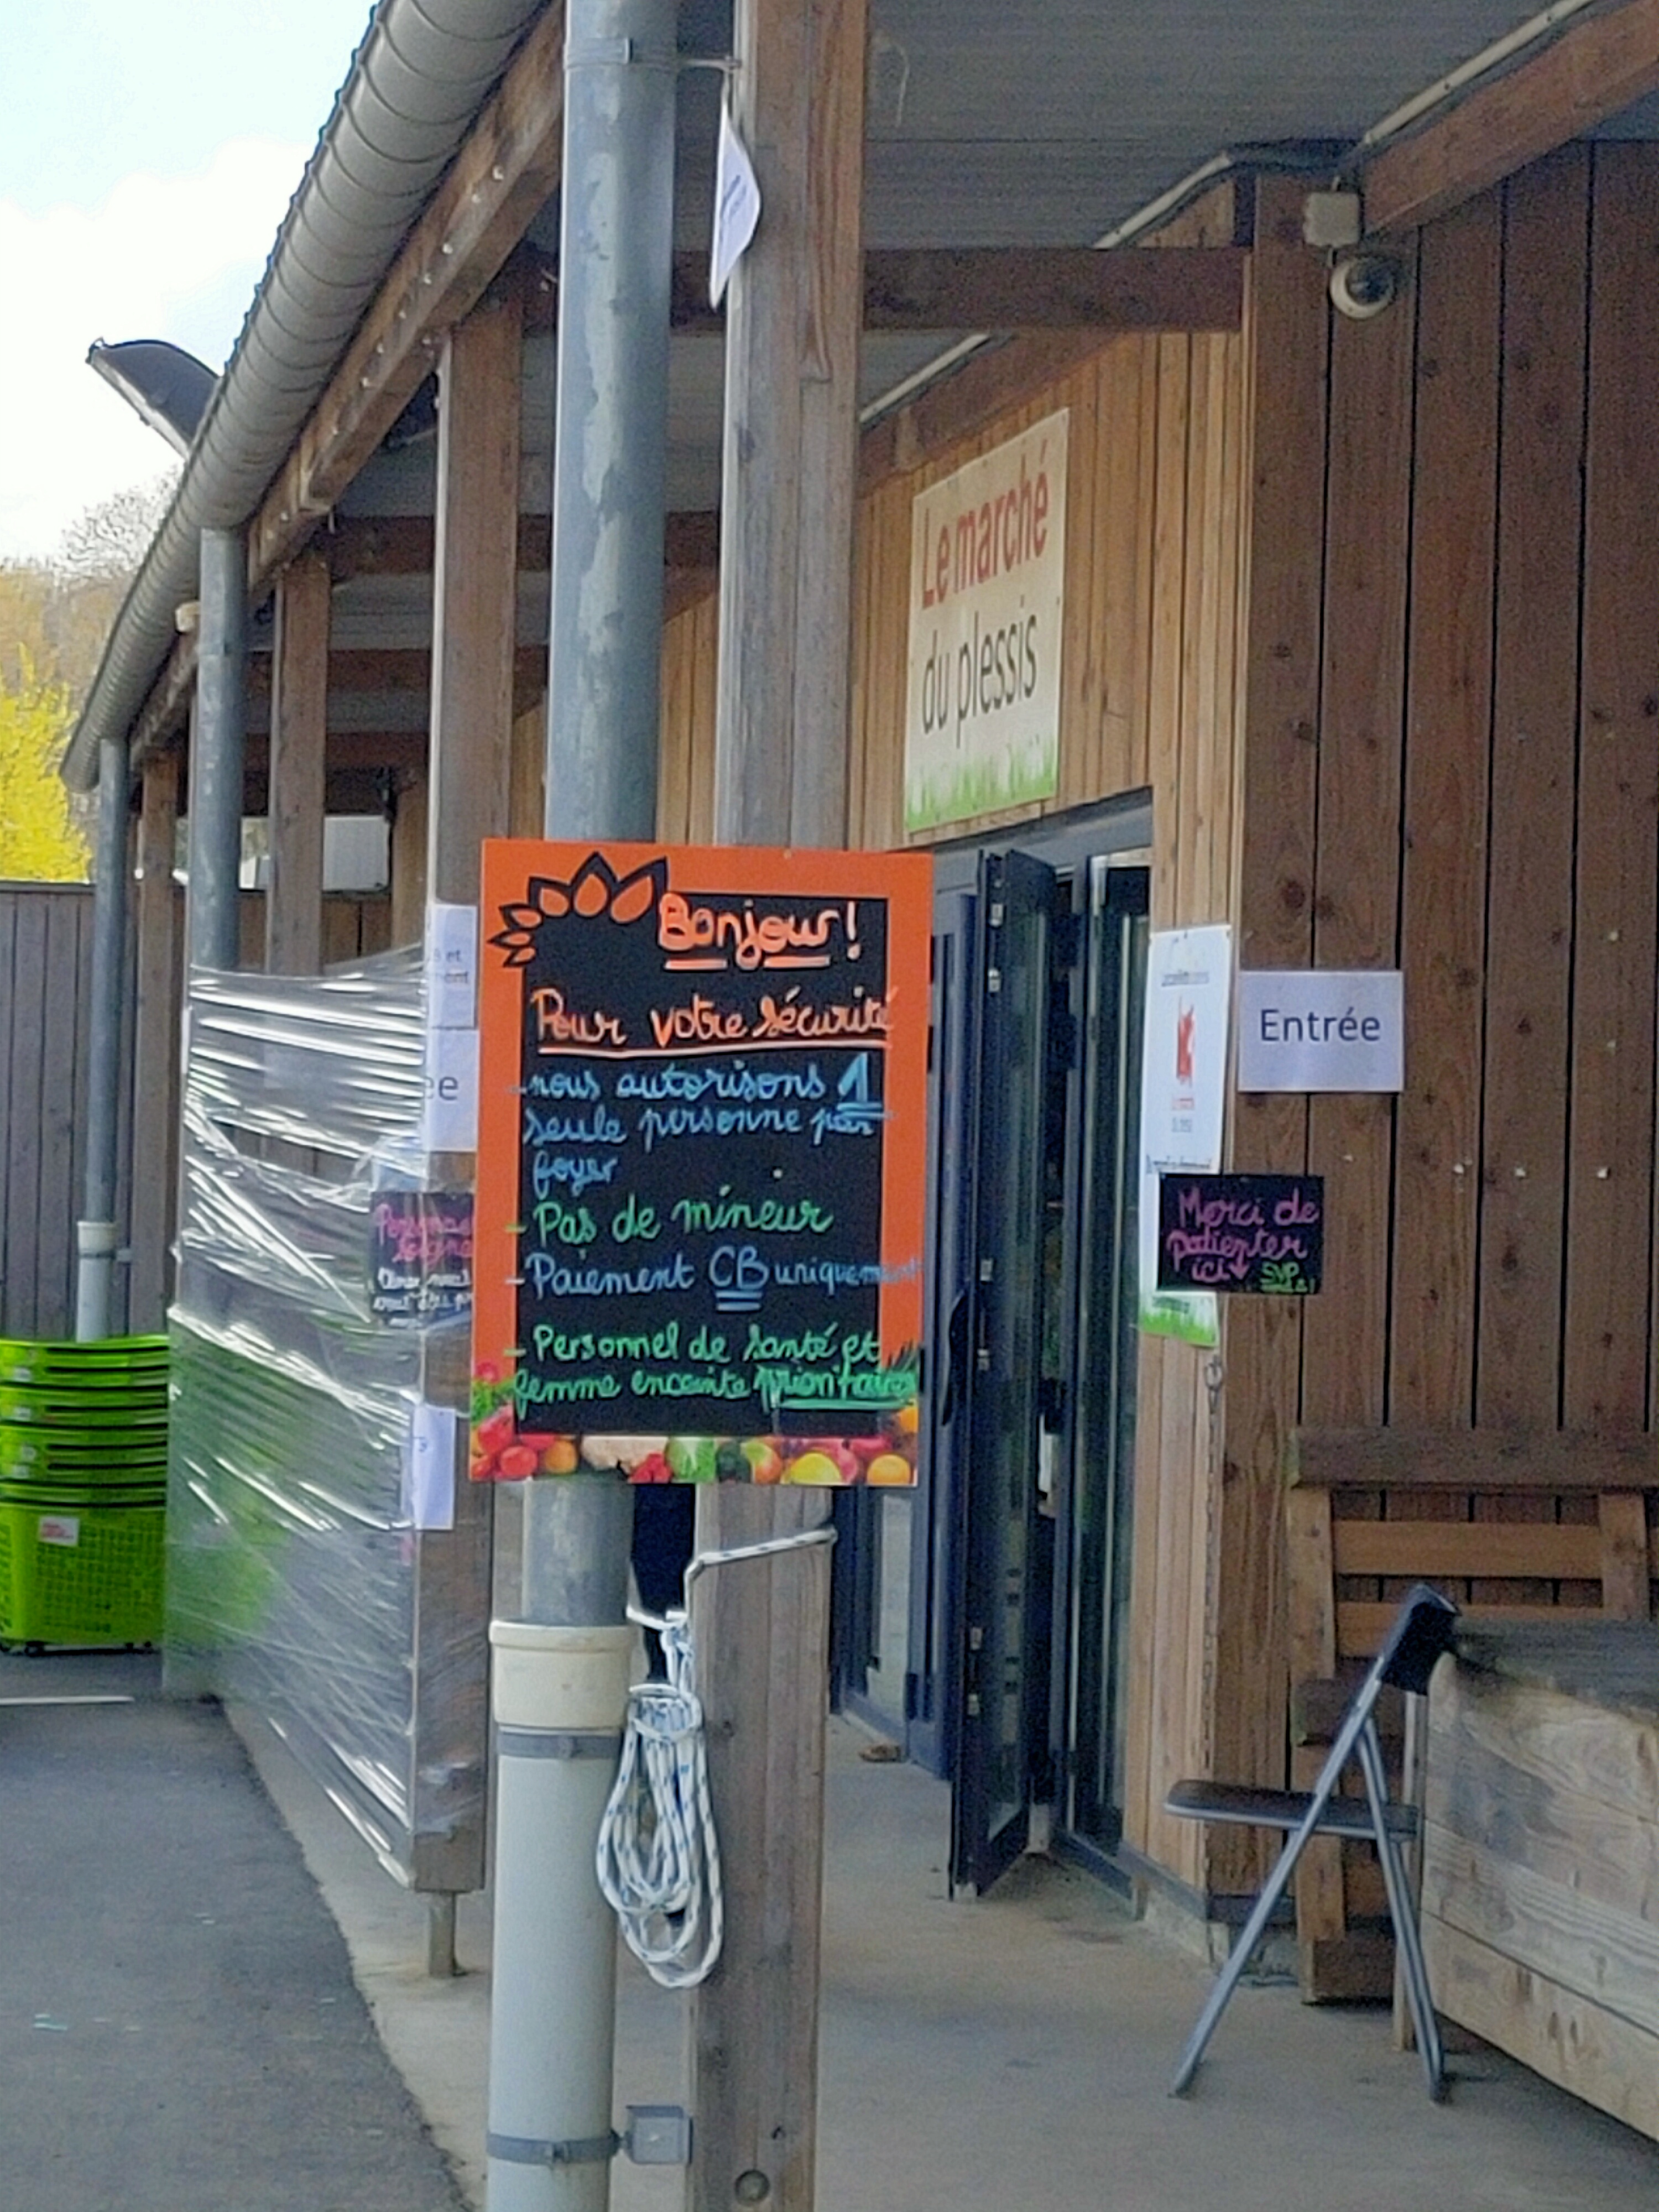 Le marché
du plessis
Bonjour!
Pour votre sécurité
- nous autorisons 1
seule personne par
foyer
- Pas de mineur
- Paiement CB uniquement
- Personnel de santé et
femme enceinte prioritaires
Entrée
Merci de
patienter
ici SVP